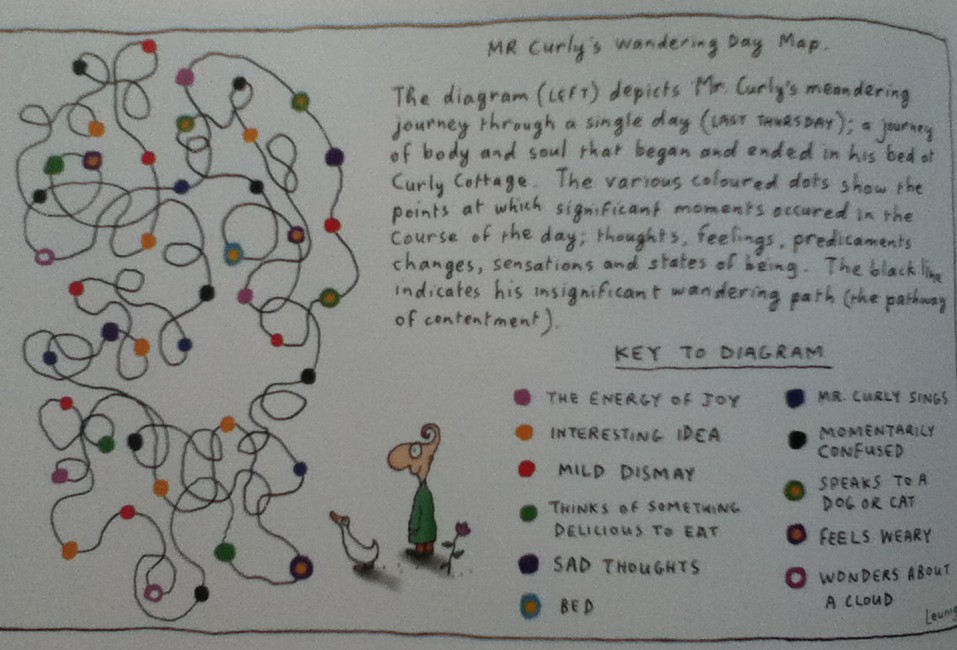 MR Curly's Wandering Day Map.
The diagram (LEFT) depicts Mr. Curly's meandering
journey through a single day (LAST THURSDAY); a journey
of body and soul that began and ended in his bed at
Curly Cottage. The various coloured dots show the
points at which significant moments occured in the
Course of the day; thoughts, feelings, predicaments
changes, sensations and states of being. The black line
indicates his insignificant wandering path (the pathway
of contentment).
KEY TO DIAGRAM
THE ENERGY OF JOY
INTERESTING IDEA
MILD DISMAY
THINKS OF SOMETHING
DELICIOUS TO EAT
SAD THOUGHTS
BED
MR. CURLY SINGS
MOMENTARILY
CONFUSED
SPEAKS TO A
DOG OR CAT
FEELS WEARY
WONDERS ABOUT
A CLOUD
Leunig